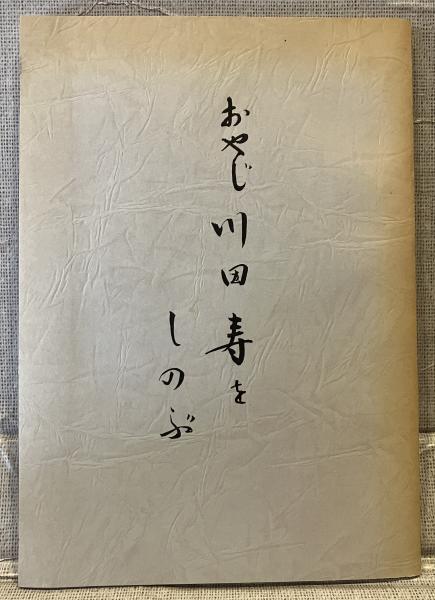 おやじ川田寿を
しのぶ